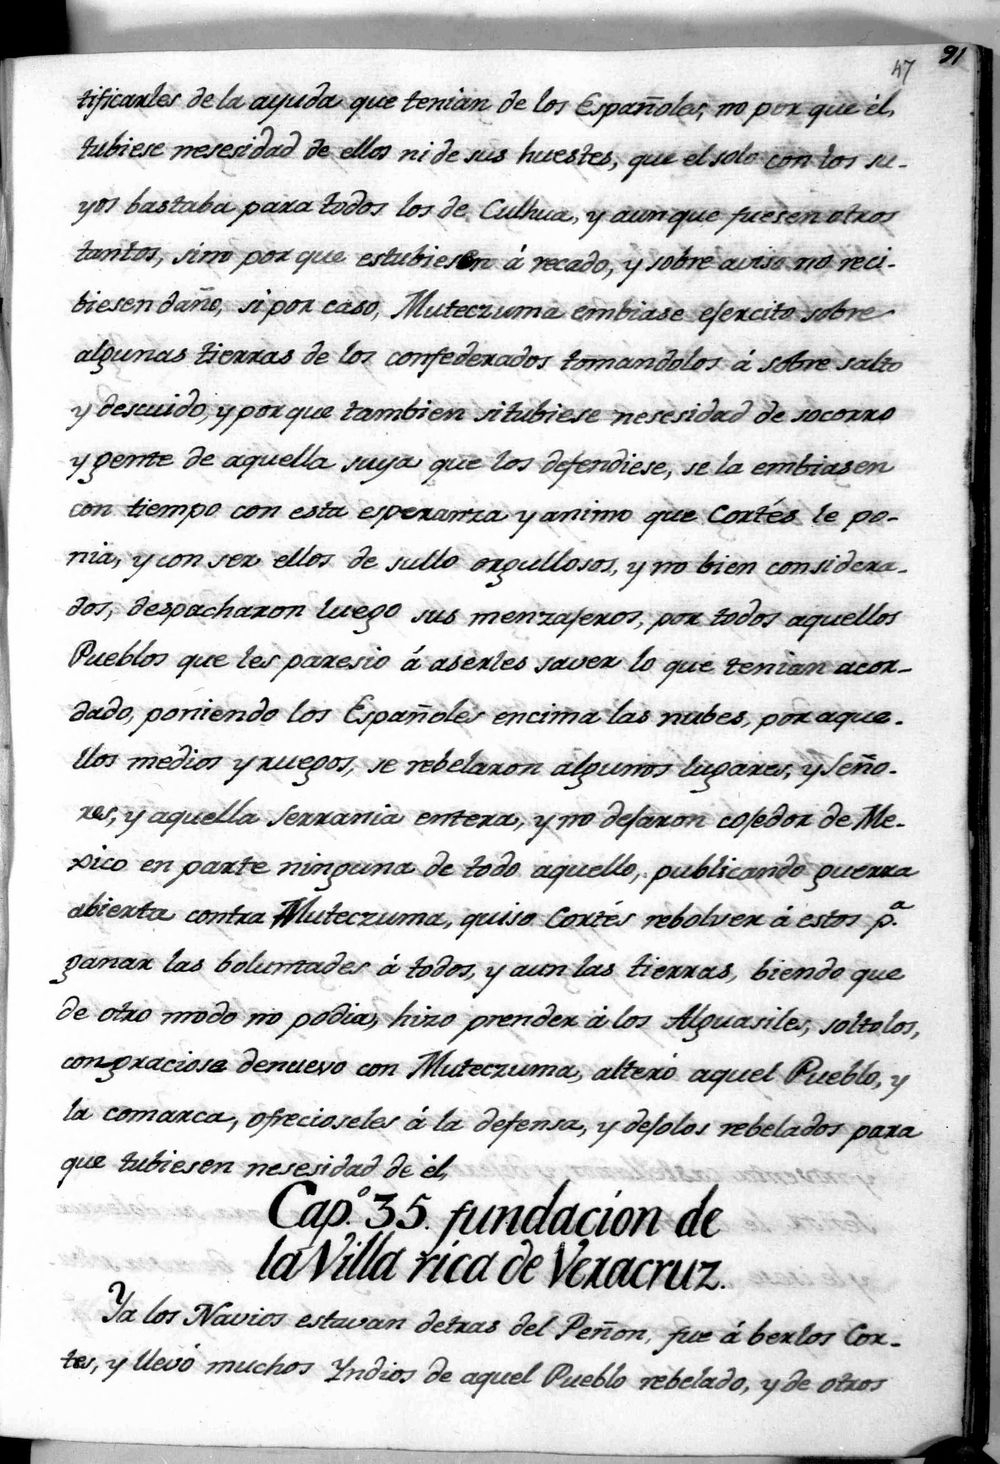 47 91
tificarles de la ayuda que tenian de los Españoles, no por que él,
tubiese nesesidad de ellos ni de sus huestes, que el solo con los su-
yos bastaba para todos los de Culhua, y aunque fuesen otros
tantos, sino por que estubiesen á recado, y sobre aviso no reci-
biesen daño, si por caso, Muteczuma embiase ejercito sobre
algunas tierras de los confederados tomandolos á sobre salto
y descuido, y por que tambien si tubiese nesesidad de socorro
y gente de aquella suya que los defendiese, se la embiasen
con tiempo con esta esperanza y animo que Cortés le po-
nia, y con ser ellos de sullo orgullosos, y no bien considera-
dos, despacharon luego sus menzajeros, por todos aquellos
Pueblos que les paresio á aserles saver lo que tenian acor-
dado, poniendo los Españoles encima las nubes, por aque-
llos medios y ruegos, se rebelaron algunos lugares, y Seño-
res, y aquella Serrania entera, y no dejaron cojedor de Me-
xico en parte ninguna de todo aquello, publicando guerra
abierta contra Muteczuma, quiso Cortés rebolver á estos p.ª
ganar las boluntades á todos, y aun las tierras, biendo que
de otro modo no podia, hizo prender á los Alguasiles, soltolos,
congraciose denuevo con Muteczuma, alteró aquel Pueblo, y
la comarca, ofrecioseles á la defensa, y dejolos rebelados para
que tubiesen nesesidad de él,
Cap.º 35. fundacion de
la Villa rica de Veracruz.
Ya los Navios estavan detras del Peñon, fue á berlos Cor-
tes, y llevó muchos Yndios de aquel Pueblo rebelado, y de otros